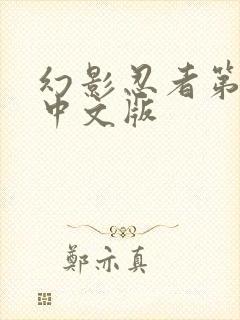 幻影忍者第
中文版
鄭亦真